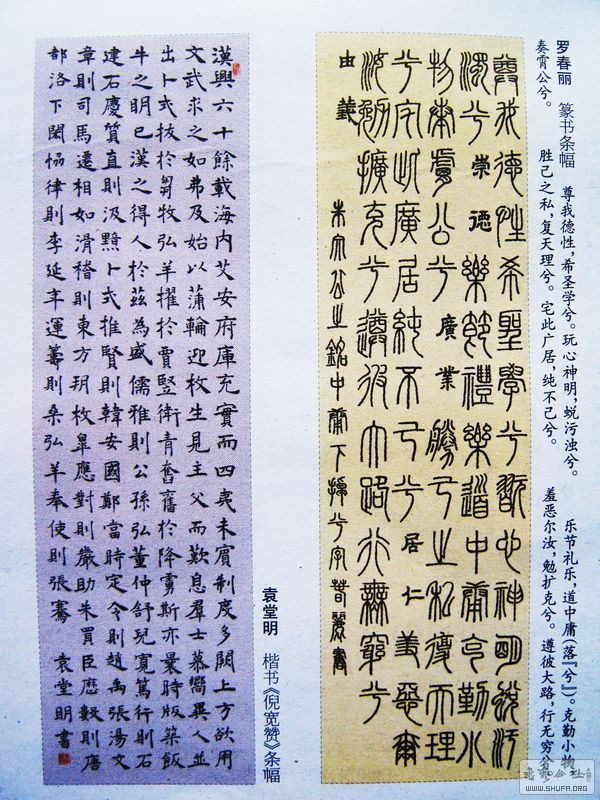 罗春丽　篆书条幅　尊我德性，希圣学兮。玩心神明，蜕污浊兮。　乐节礼乐，道中庸（落『兮』）。克勤小物
奏霄公兮。　胜己之私，复天理兮。宅此广居，纯不已兮。　羞恶尔汝，勉扩克兮。遵彼大路，行无穷兮。
尊我德性希聖學兮玩心神明蛻汙
濁兮 崇德 樂節禮樂道中庸克勤小
物奏膚公兮 廣業 勝己之私復天理
兮宅此廣居純不已兮 居仁 羞惡爾
汝勉擴充兮遵彼大路行無窮兮
由義 朱文公之銘中庸下兮字 春麗書
袁堂明　楷书《倪宽赞》条幅
漢興六十餘載海內艾安府庫充實而四夷未賓制度多闕上方欲用
文武求之如弗及始以蒲輪迎枚生見主父而歎息羣士慕嚮異人並
出卜式拔於芻牧弘羊擢於賈豎衛青奮舊於降虜斯亦曩時版築飯
牛之明已漢之得人於茲為盛儒雅則公孫弘董仲舒兒寬篤行則石
建石慶質直則汲黯卜式推賢則韓安國鄭當時定令則趙禹張湯文
章則司馬遷相如滑稽則東方朔枚皋應對則嚴助朱買臣曆數則唐
都洛下閎協律則李延年運籌則桑弘羊奉使則張騫 袁堂明書
WWW.SHUFA.ORG